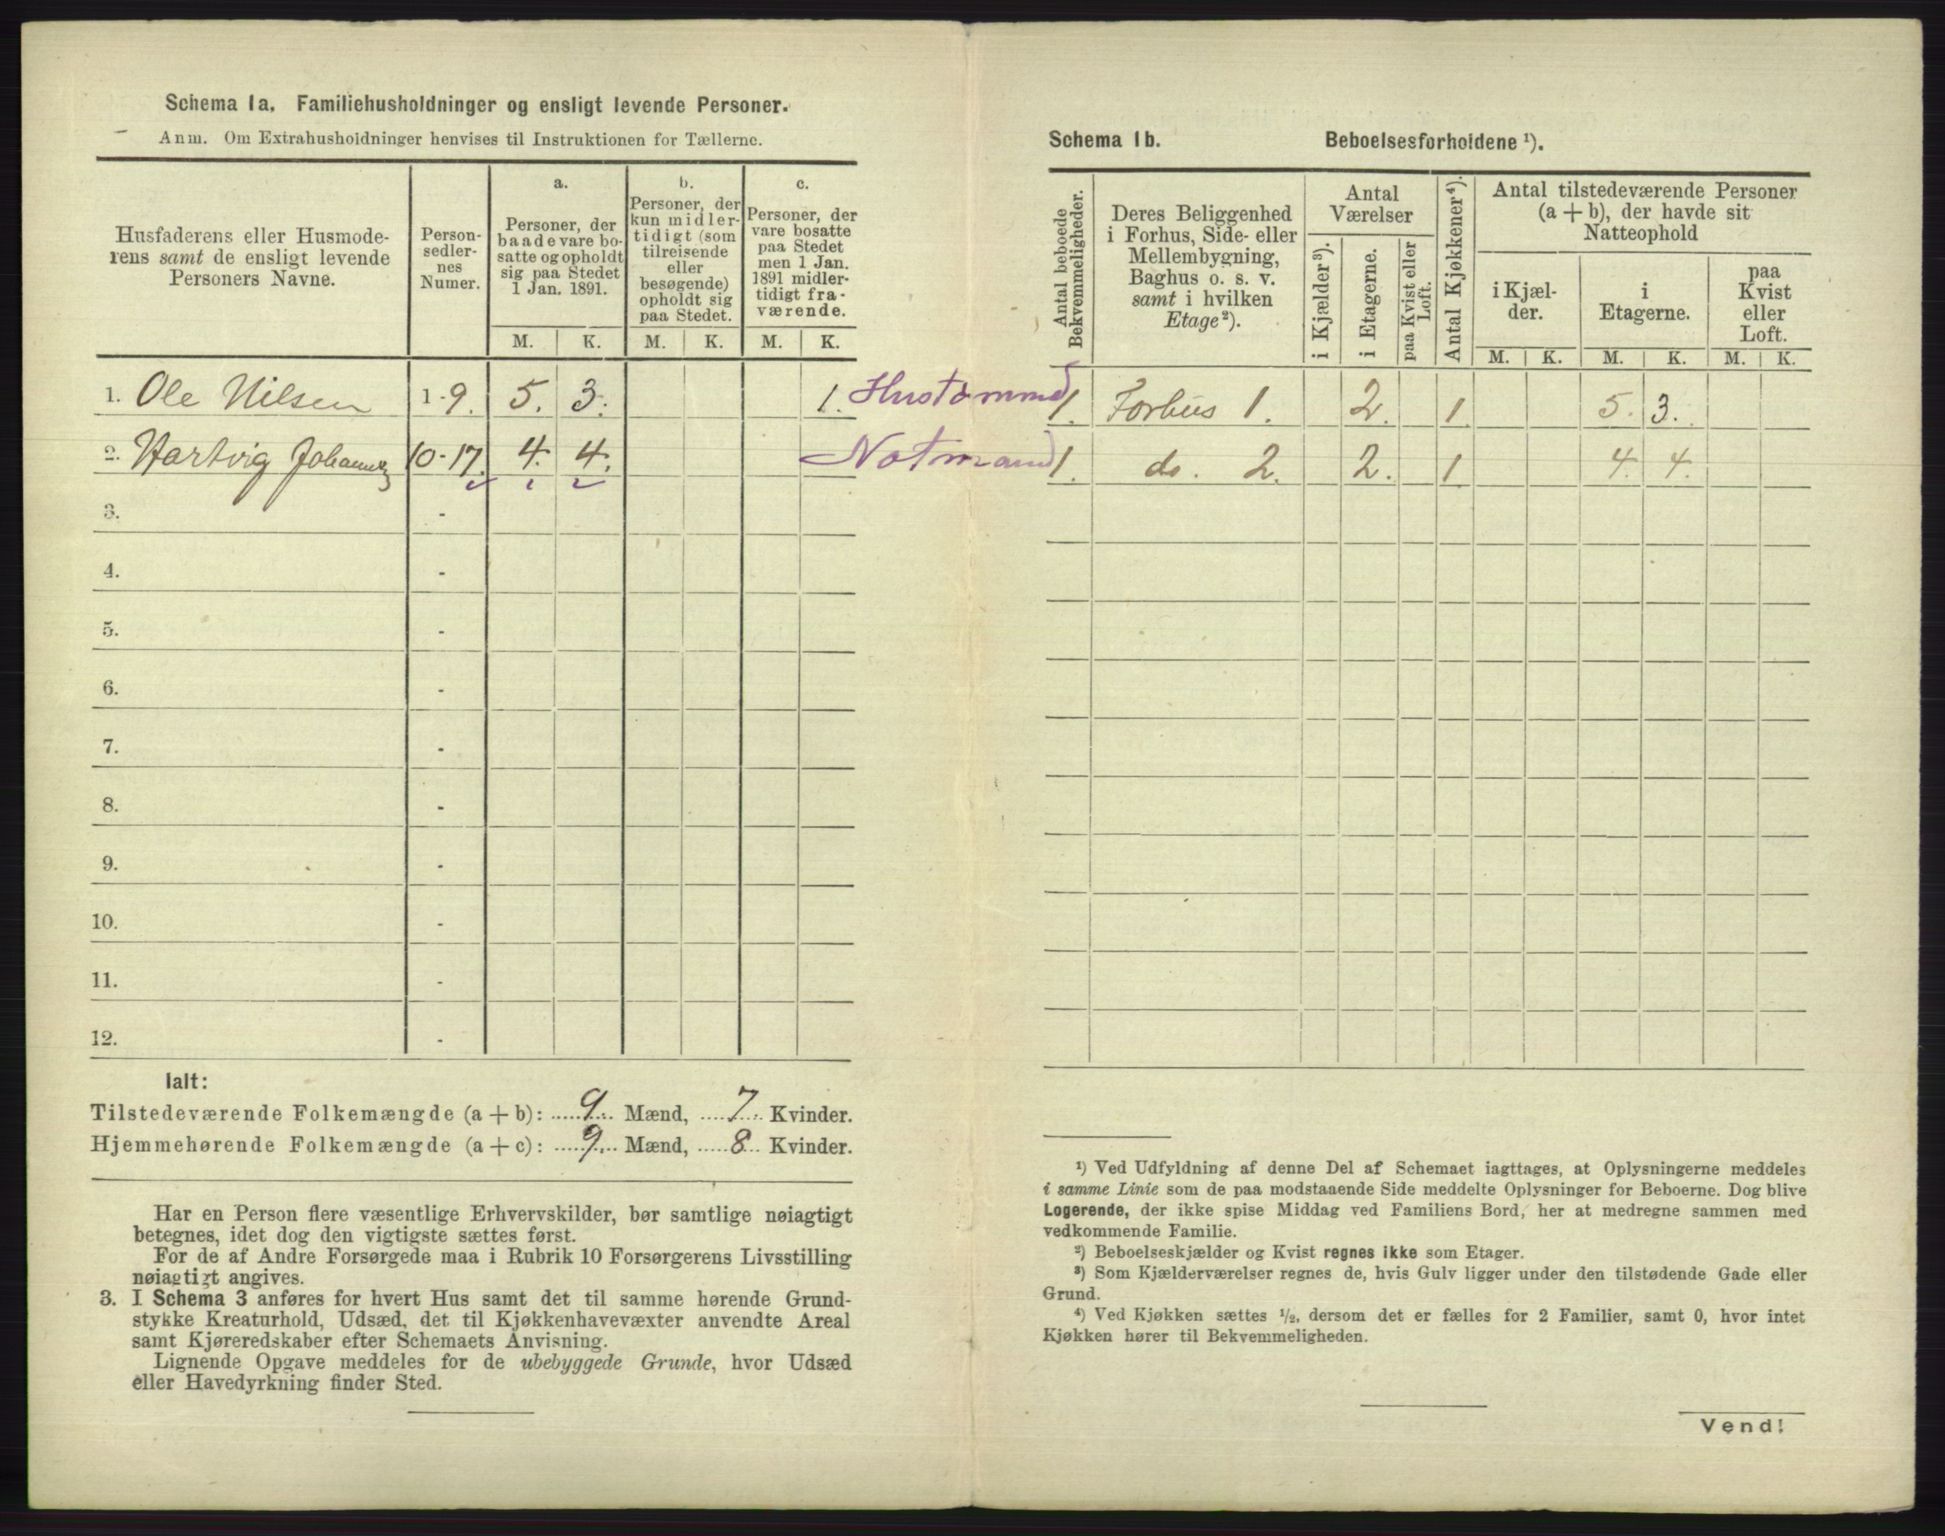 Schema 1a. Familiehusholdninger og ensligt levende Personer.
Anm. Om Extrahusholdninger henvises til Instruktionen for Tællerne.
Husfaderens eller Husmode-
rens samt de ensligt levende
Personers Navne.
Person-
sedler-
nes
Numer.
a.
Personer, der
baade vare bo-
satte og opholdt
sig paa Stedet
1 Jan. 1891.
b.
Personer, der
kun midler-
tidigt (som
tilreisende
eller
besøgende)
opholdt sig
paa Stedet.
c.
Personer, der
vare bosatte
paa Stedet
men 1 Jan.
1891 midler-
tidigt fra-
værende.
M. K. M. K. M. K.
1. Ole Nilsen 1-9. 5. 3. 1.
2. Hartvig 10-17. 4. 4.
3. -
4. -
5. -
6. -
7. -
8. -
9. -
10. -
11. -
12. -
Ialt:
Tilstedeværende Folkemængde (a+b): 9 Mænd, 7 Kvinder.
Hjemmehørende Folkemængde (a+c): 9 Mænd, 8 Kvinder.
Har en Person flere væsentlige Erhvervskilder, bør samtlige nøiagtigt
betegnes, idet dog den vigtigste sættes først.
For de af Andre Forsørgede maa i Rubrik 10 Forsørgerens Livsstilling
nøiagtigt angives.
3. I Schema 3 anføres for hvert Hus samt det til samme hørende Grund-
stykke Kreaturhold, Udsæd, det til Kjøkkenhavevæxter anvendte Areal
samt Kjøreredskaber efter Schemaets Anvisning.
Lignende Opgave meddeles for de ubebyggede Grunde, hvor Udsæd
eller Havedyrkning finder Sted.
Schema 1b. Beboelsesforholdene ¹).
Antal beboede
Bekvemmeligheder.
Deres Beliggenhed
i Forhus, Side- eller
Mellembygning,
Baghus o. s. v.
samt i hvilken
Etage²).
Antal
Værelser
i Kjælder³).
i Etagerne.
paa Kvist eller
Loft.
Antal Kjøkkener⁴).
Antal tilstedeværende Personer
(a + b), der havde sit
Natteophold
i Kjæl-
der.
i
Etagerne.
paa
Kvist
eller
Loft.
M. K. M. K. M. K.
Hustømmmd 1. Forhus 1. 2. 1. 5. 3.
Notmand 1. do. 2. 2. 1. 4. 4.
¹) Ved Udfyldning af denne Del af Schemaet iagttages, at Oplysningerne meddeles
i samme Linie som de paa modstaaende Side meddelte Oplysninger for Beboerne. Dog blive
Logerende, der ikke spise Middag ved Familiens Bord, her at medregne sammen med
vedkommende Familie.
²) Beboelseskjælder og Kvist regnes ikke som Etager.
³) Som Kjælderværelser regnes de, hvis Gulv ligger under den tilstødende Gade eller
Grund.
⁴) Ved Kjøkken sættes ½, dersom det er fælles for 2 Familier, samt 0, hvor intet
Kjøkken hører til Bekvemmeligheden.
Vend!